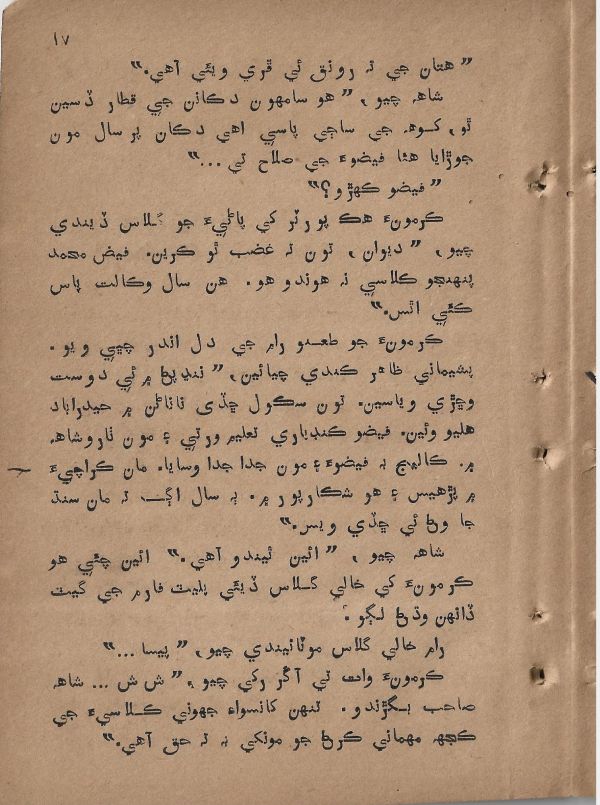 ۱۷
”هتان جي ته رونق ئي ڦري ويئي آهي.“
شاهه چيو، ”هو سامهون دڪانن جي قطار ڏسين
ٿو، کوهه جي ساڄي پاسي اهي دڪان پر سال مون
جوڙايا هئا فيضوءَ جي صلاح تي...“
”فيضو ڪهڙو؟“
ڪرمونءَ هڪ پورٽر کي پاڻيءَ جو گلاس ڏيندي
چيو، ”ديوان، تون ته غضب ٿو ڪرين. فيض محمد
پنهنجو ڪلاسي نه هوندو هو. هن سال وڪالت پاس
ڪئي اٿس.“
ڪرمونءَ جو طعنو رام جي دل اندر چڀي ويو.
پشيماني ظاهر ڪندي چيائين، ”ننڍپڻ ۾ ئي دوست
وڇڙي وياسين. تون سڪول ڇڏي ناناڻن ۾ حيدراباد
هليو وئين. فيضو ڪنڊياري تعليم ورتي ۽ مون ٺاروشاهه
۾. ڪاليج به فيضوءَ ۽ مون جدا جدا وسايا. مان ڪراچيءَ
۾ پڙهيس ۽ هو شڪارپور ۾. ٻه سال اڳ ته مان سنڌ
جا وڻ ئي ڇڏي ويس.“
شاهه چيو، ”ائين ٿيندو آهي.“ ائين چئي هو
ڪرمونءَ کي خالي گلاس ڏيئي پليٽ فارم جي گيٽ
ڏانهن وڌڻ لڳو.
رام خالي گلاس موٽائيندي چيو، ”پيسا...“
ڪرمونءَ وات تي آڱر رکي چيو، ”ش ش... شاهه
صاحب بگڙندو. تنهن کانسواءِ جهوني ڪلاسيءَ جي
ڪجهه مهماني ڪرڻ جو مونکي به ته حق آهي.“